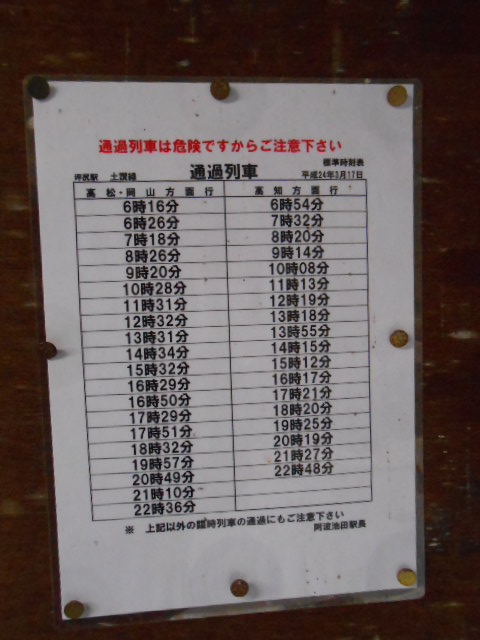 通過列車は危険ですからご注意下さい
標準時刻表
坪尻駅 土讃線 通過列車 平成24年3月17日
高松・岡山方面行 高知方面行
6時16分 6時54分
6時26分 7時32分
7時18分 8時20分
8時26分 9時14分
9時20分 10時08分
10時28分 11時13分
11時31分 12時19分
12時32分 13時18分
13時31分 13時55分
14時34分 14時15分
15時32分 15時12分
16時29分 16時17分
16時50分 17時21分
17時29分 18時20分
17時51分 19時25分
18時32分 20時19分
19時57分 21時27分
20時49分 22時48分
21時10分
22時36分
※ 上記以外の臨時列車の通過にもご注意下さい
阿波池田駅長